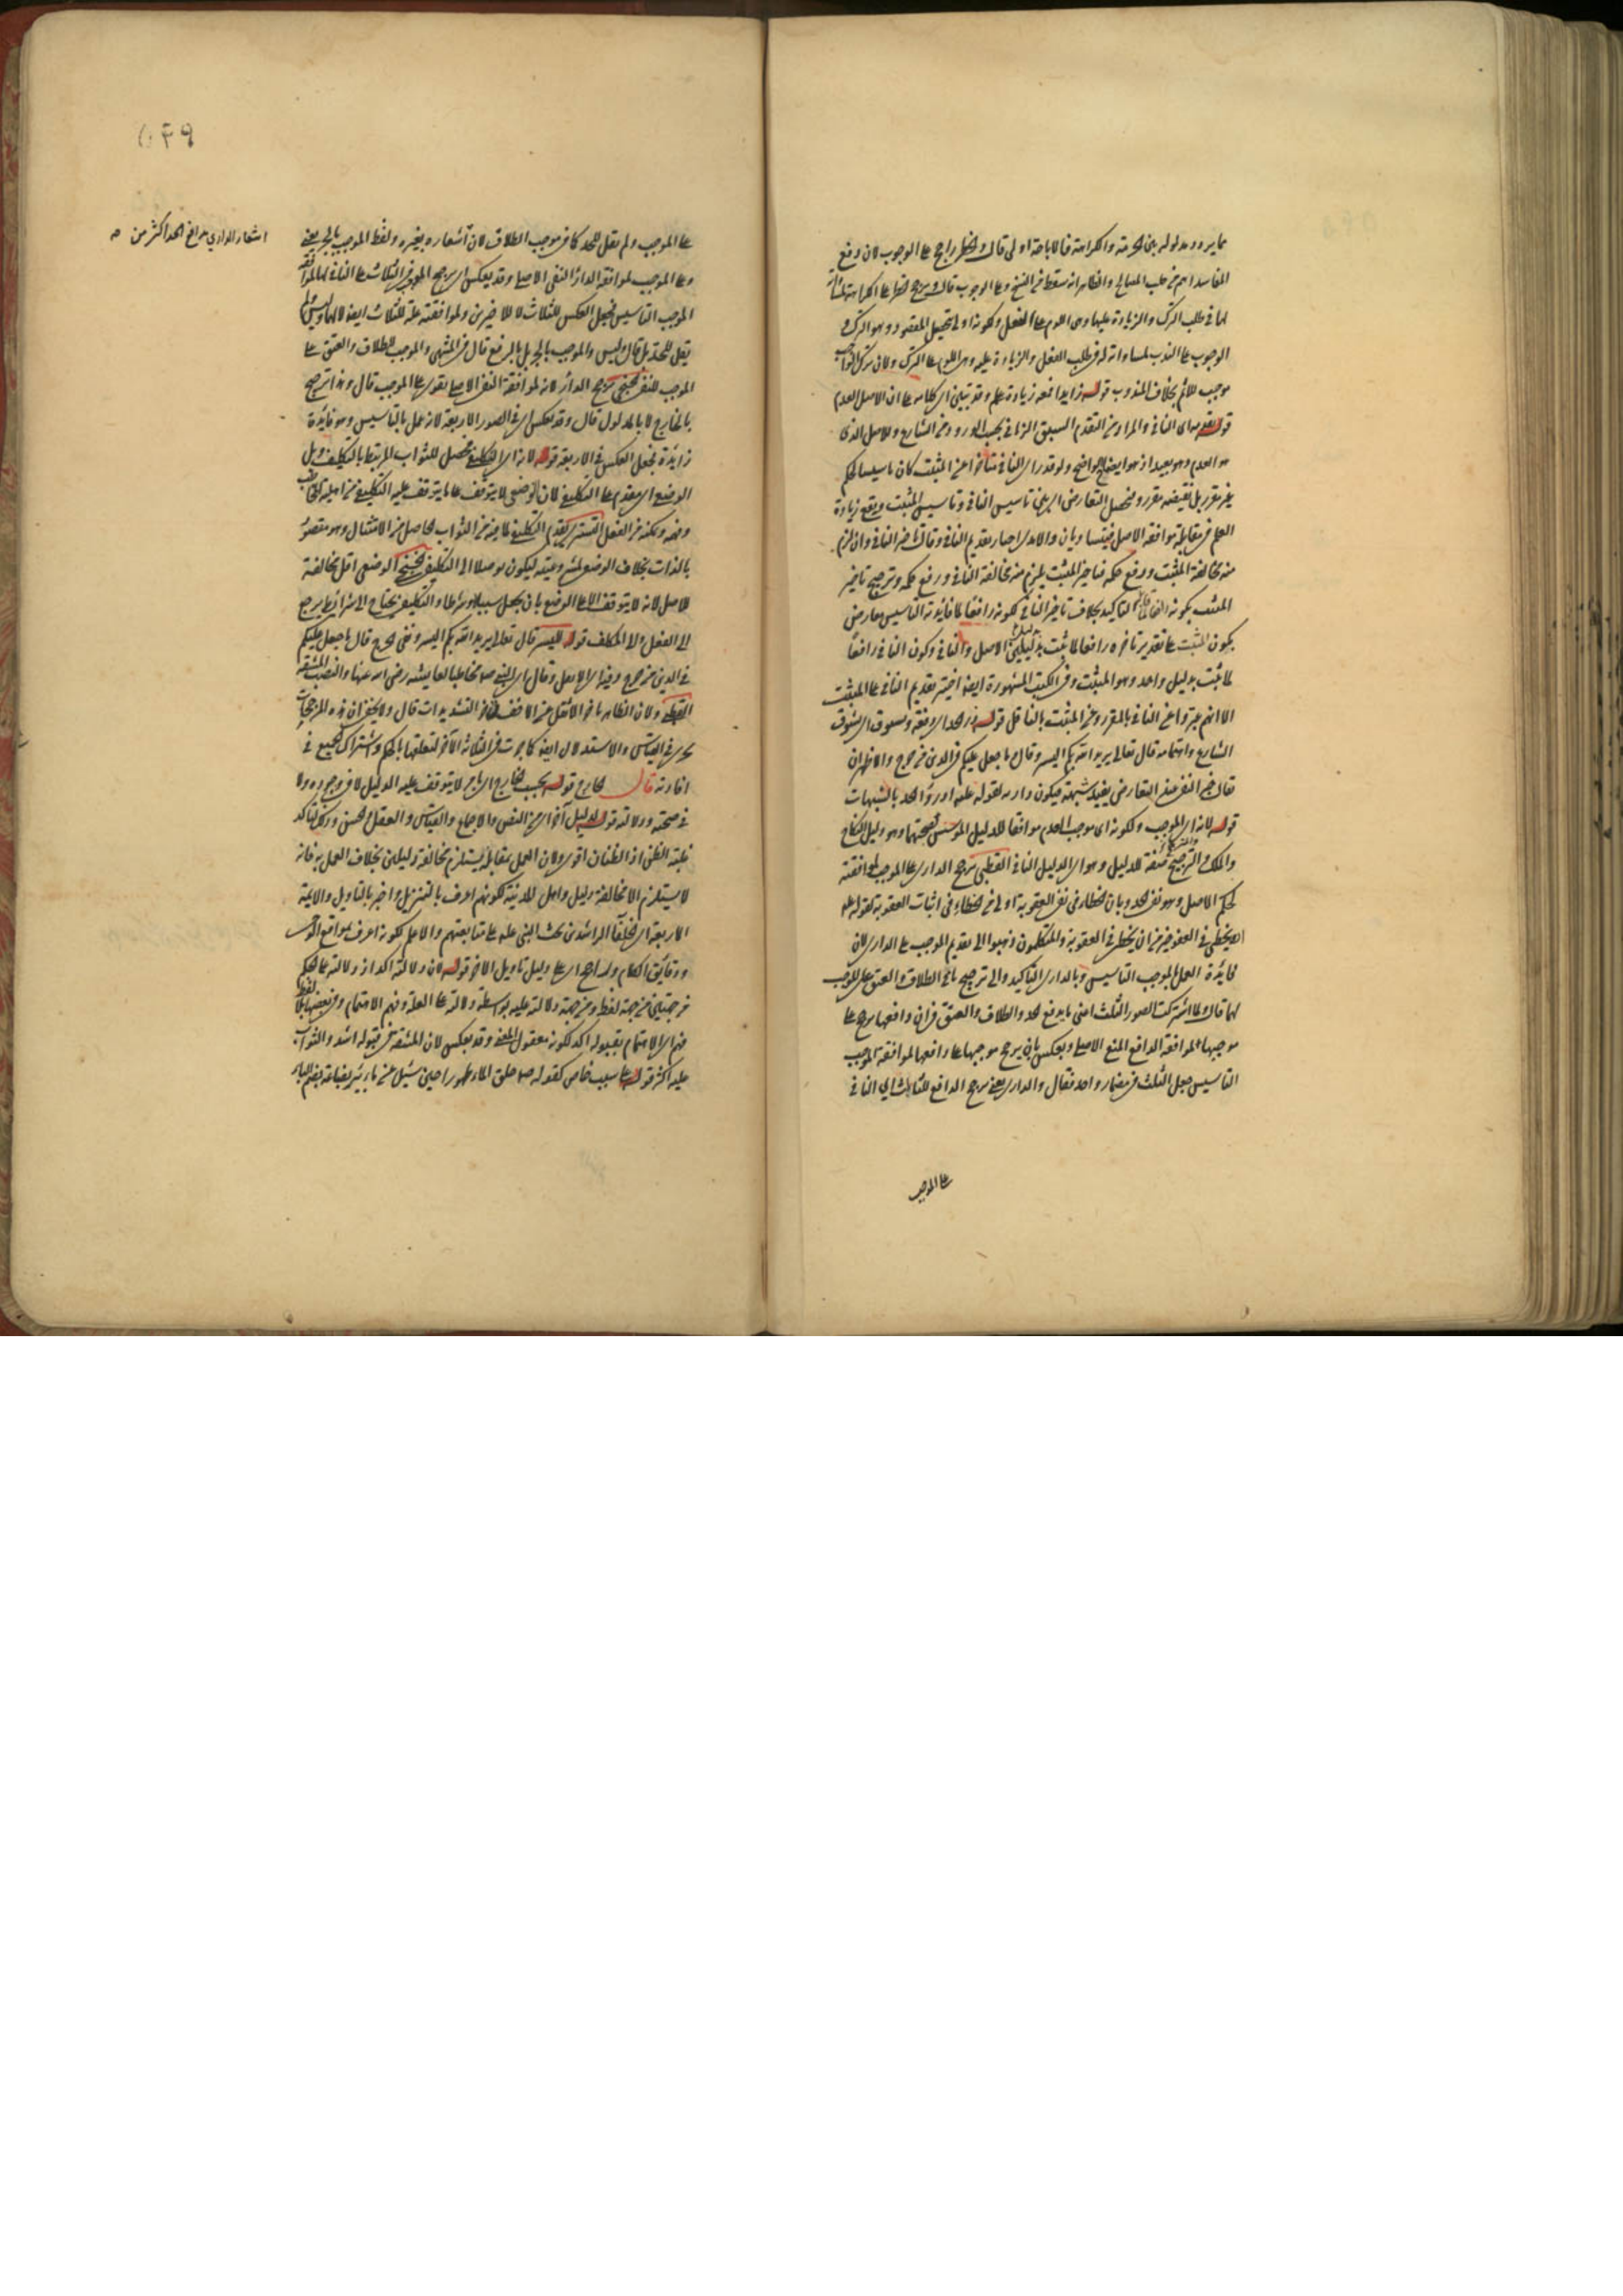 مما يردد مدلوله بين الحرمة والكراهة فالاباحة اولى قال والحظر راجح على الوجوب لان دفع
المفاسد اهم من جلب المصالح والظاهر انه سقط من النسخ وعلى الوجوب قال ويرجح الحظر على الكراهة لمساواته
لها في طلب الترك والزيادة عليها وهى اللوم على الفعل ولكونه اولى لتحصيل المقصود وهو الترك و
الوجوب على الندب لمساواته له في طلب الفعل والزيادة عليه وهى اللوم على الترك ولان ترك الواجب
موجب للاثم بخلاف المندوب قوله زايد افعه زيادة علم وقد تبين ان كلامه على ان الاصل العدم
قوله بعدمه اى النافى والمراد من التقدم السبق الزمانى بحسب الورود من الشارع والاصل الذى
هو العدم وهو بعيد اذ هو ايضا الواضح ولو قدر اى النافى متأخرا عن المثبت كان تاسيسا لحكم
غير مقرر بل نقيضه مقرر و فحصل التعارض اى بين تاسيس النافى وتاسيس المثبت ويقع زيادة
العلم في مقابلة موافقة الاصل فيتساويان والامدى اختار تقديم النافى وقال تاخر النافى وان لزم
منه مخالفة المثبت ورفع حكمه فتاخير المثبت يلزم منه مخالفة النافى ورفع حكمه وترجيح تاخير
المثبت بكونه التاكيد بخلاف تاخير النافى لكونه رافعا لما فائدته التاسيس معارض
بكون المثبت على تقدير تاخره رافعا لما ثبت بدليلين الاصل والنافى وكون النافى رافعا
لما ثبت بدليل واحد وهو المثبت وفي الكتب المشهورة ايضا اختير تقديم النافى على المثبت
الا انهم عبروا عن النافى بالمقرر وعن المثبت بالناقل قوله درء الحد اى دفعه ومسوق اى بشوق
الشارع واهتمامه قال تعالى يريد الله بكم اليسر وقال ما جعل عليكم في الدين من حرج والاظهر ان
يقال خبر النفى عند التعارض يفيد شبهة فيكون دارءا لقوله عليه ادرؤا الحد بالشبهات
قوله لانه اى الموجب ولكونه اى موجب العدم موافقا للدليل المؤسس لصحتهما وهو دليل النكاح
والملك الترجيح صفة للدليل وهو اى الدليل النافى القطبى يرجح الدارى على الموجب لموافقته
لحكم الاصل وهو نفى الحد وبان الخطاء فى نفى العقوبة اولى من الخطاء فى اثبات العقوبة لقوله عليه
ان يخطئ فى العفو خير من ان يخطئ فى العقوبة والمتكلمون ذهبوا الى تقديم الموجب على الدارى لان
فايدة العمل بالموجب التاسيس وبالدارى التاكيد والى ترجيح نافى الطلاق والعتق على الموجب
لهما قال ولما اشتركت الصور الثلث اعنى ما يدفع الحد والطلاق والعتق في ان دافعها يرجح على
موجبها لموافقة الدافع المنع الاصلى ويعكس بان يرجح موجبها على دافعها لموافقة الموجب
التاسيس جعل الثلث في مضمار واحد فقال والدارى يعنى يرجح الدافع للثلث اى النافى
على الموجب
على الموجب ولم يقل للحد كما في موجب الطلاق لان اشعاره بغيره ولفظ الموجب بالجر يعنى
وعلى الموجب لموافقة الدارء النفى الاصلى وقد يعكس اى يرجح الموجب في الثلاث على النافى لها لموافقة
الموجب التاسيس فجعل العكس للثلاث لا للاخيرين ولموافقته علة للثلاث ايضا لا لهما وليس ولم
يقل للحد بل قال وليس والموجب بالجر بل بالرفع قال في المنتهى والموجب للطلاق والعتق على
الموجب للنفى الخنجى يرجح الدارء لانه لموافقة النفى الاصلى تقوى على الموجب قال وهذا ترجيح
بالخارج لا بالمدلول قال وقد يعكس اى في الصور الاربعة لانه عمل بالتاسيس وهو فايدة
زايدة فجعل العكس في الاربعة قوله لانه اى التكليفى محصل للثواب المرتبط بالتكليف وقيل
الوضعى اى مقدم على التكليفى لان الوضعى لا يتوقف على ما يتوقف عليه التكليفى من اهلية المخاطب
وفهمه وتمكنه من الفعل التسترى يقدم التكليفى لما فيه من الثواب الحاصل من الامتثال وهو مقصود
بالذات بخلاف الوضع لشرعيته ليكون موصلا الى التكليف الخنجى الوضعى اقل مخالفة
للاصل لانه لا يتوقف الا على الوضع بان يجعل سببا او شرطا والتكليفى يحتاج الى شرائط يرجع
الى الفعل والى المكلف قوله لليسر قال تعالى يريد الله بكم اليسر ونفى الحرج قال ما جعل عليكم
في الدين من حرج وقال اى النبى صم مخاطبا لعايشه رضى الله عنها والنصب المشقة
القطبى ولان الظاهر تاخر الاثقل عن الاخف قال ولا يخفى ان هذه المرجحات
يجرى في القياس والاستدلال ايضا كما جرت في الثلاثة الاخر لتعلقها بالحكم واشتراك الجميع فى
افادته قال الخارج قوله بحسب الخارج اى امر لا يتوقف عليه الدليل لا في وجوده ولا
فى صحته ودلالته قوله لدليل آخر اى من النص والاجماع والقياس والعقل والحس وذلك لتاكد
غلبة الظن اذ الظنان اقوى ولان العمل بمقابله يستلزم مخالفة دليلين بخلاف العمل به فانه
لا يستلزم الا مخالفة دليل واهل المدينة لكونهم اعرف بالتنزيل واخبر بالتاويل والائمة
الاربعة اى الخلفآ الراشدين لحث النبى عليه على متابعتهم والاعلم لكونه اعرف بمواقع الوحى
ودقايق الكلام وارجح اى على دليل تاويل الاخر قوله لان دلالته اكد اذ دلالته على الحكم
من جهتين من جهة لفظ ومن جهة دلالته عليه بواسطة دلالته على العلة وفهم الاهتمام وفي بعضها لفظ
فهم اى الاهتمام بقبوله اكد لكونه معقول المعنى وقد يعكس لان المشقة في قبوله اشد والثواب
عليه اكثر قوله على سبب خاص كقوله صم خلق الماء طهورا حين سئل عن ماء بئر بضاعة بضم الباء
اشعار الدارى بدافع الحد اكثر من صـ